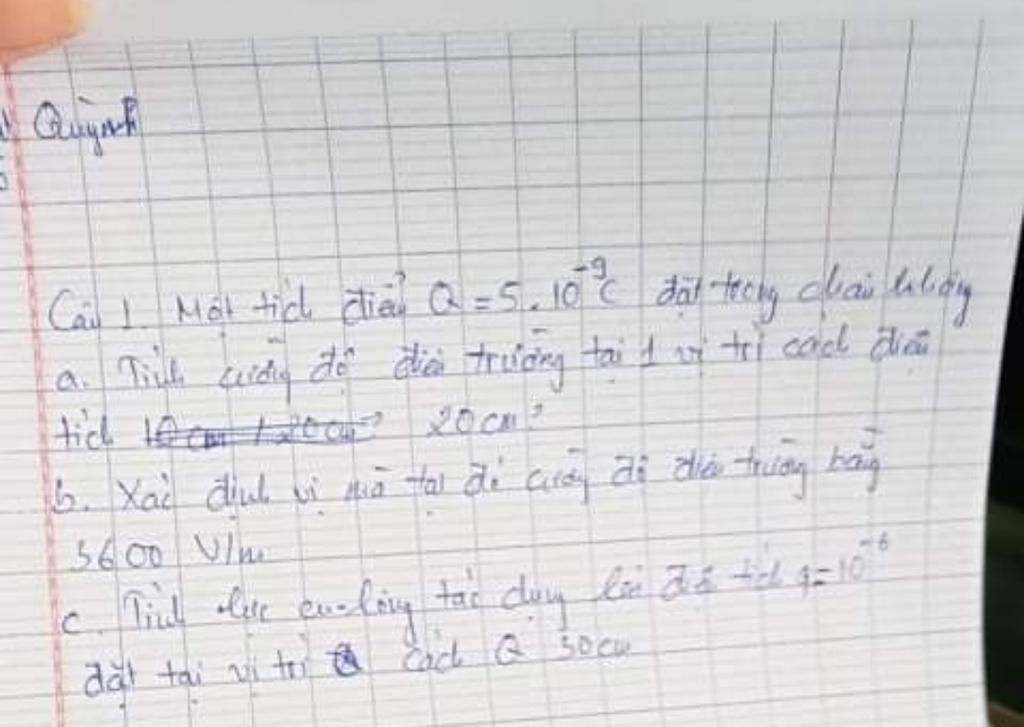 Quỳnh
Câu 1. Một tích điểm Q = 5.10⁻⁹C đặt trong chân không
a. Tính cường độ điện trường tại 1 vị trí cách điện
tích 10cm 20cm?
b. Xác định vị mà tại đó cường độ điện trường bằng
5600 V/m
c. Tính lực cu-lông tác dụng lên điện tích q=10⁻⁶
đặt tại vị trí cách Q 30cm